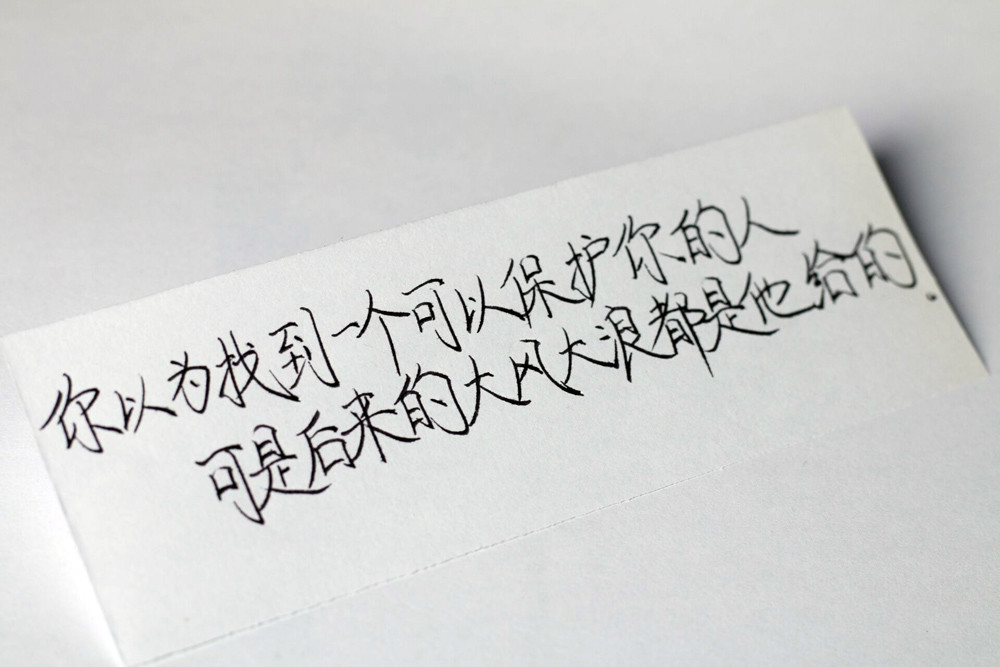 你以为找到一个可以保护你的人
可是后来的大风大浪都是他给的.